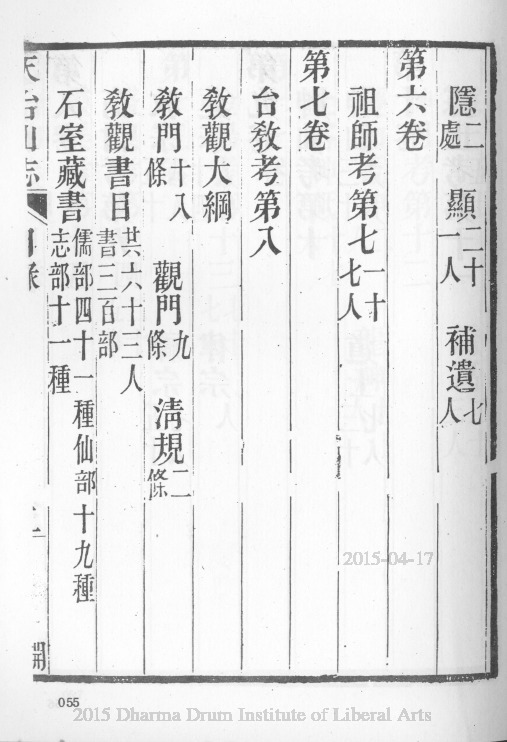 隱二處 顯二十一人 補遺七人
第六卷
祖師考第七一十七人
第七卷
台敎考第八
敎觀大綱
敎門十八條 觀門九條 淸規二條
敎觀書目共六十三人書三百部
石室藏書儒部四十一種仙部十九種志部十一種
天台山志 目錄
2015-04-17
055
2015 Dharma Drum Institute of Liberal Arts